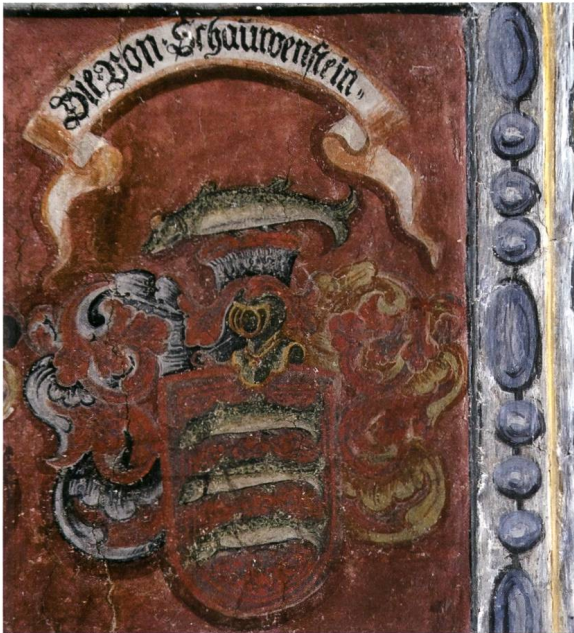 Die von Schauwenstein„